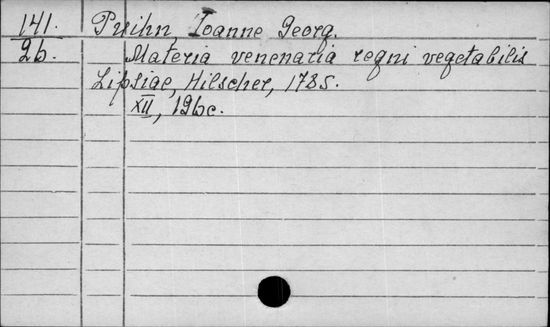 141. Puihn, Ioanne Georg.
26. Materia venenaria regni vegetabilis
Lipsiae, Hilscher, 1785.
XII, 196c.